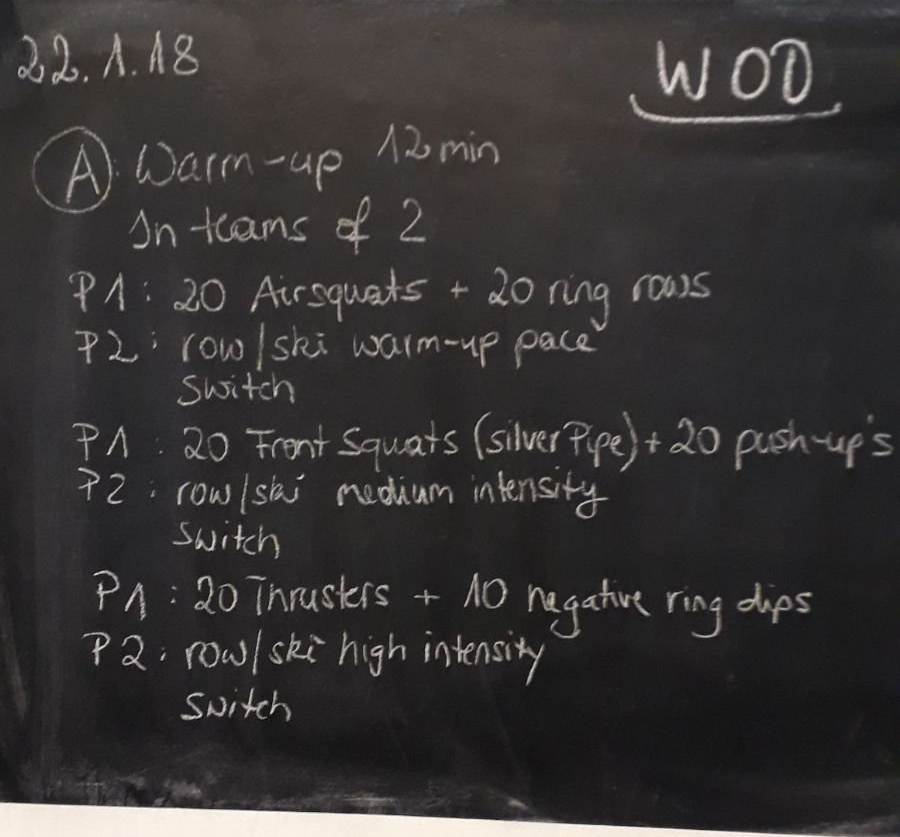 22.1.18
WOD
A Warm-up 12 min
In teams of 2
P1: 20 Airsquats + 20 ring rows
P2: row/ski warm-up pace
Switch
P1: 20 Front Squats (Silver Pipe) + 20 push-up's
P2: row/ski medium intensity
Switch
P1: 20 Thrusters + 10 negative ring dips
P2: row/ski high intensity
Switch